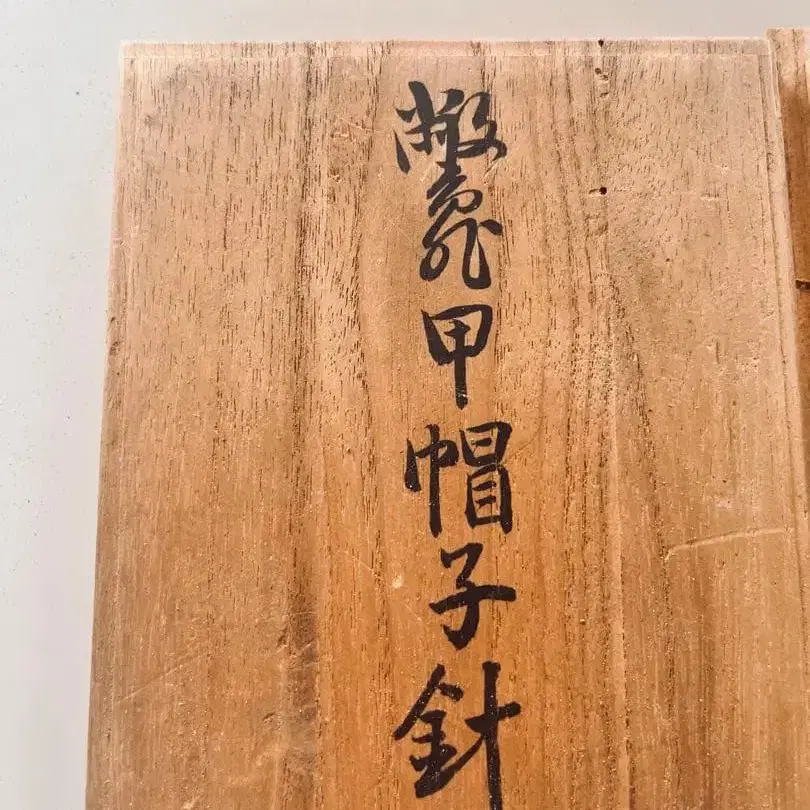 鼈甲帽子針